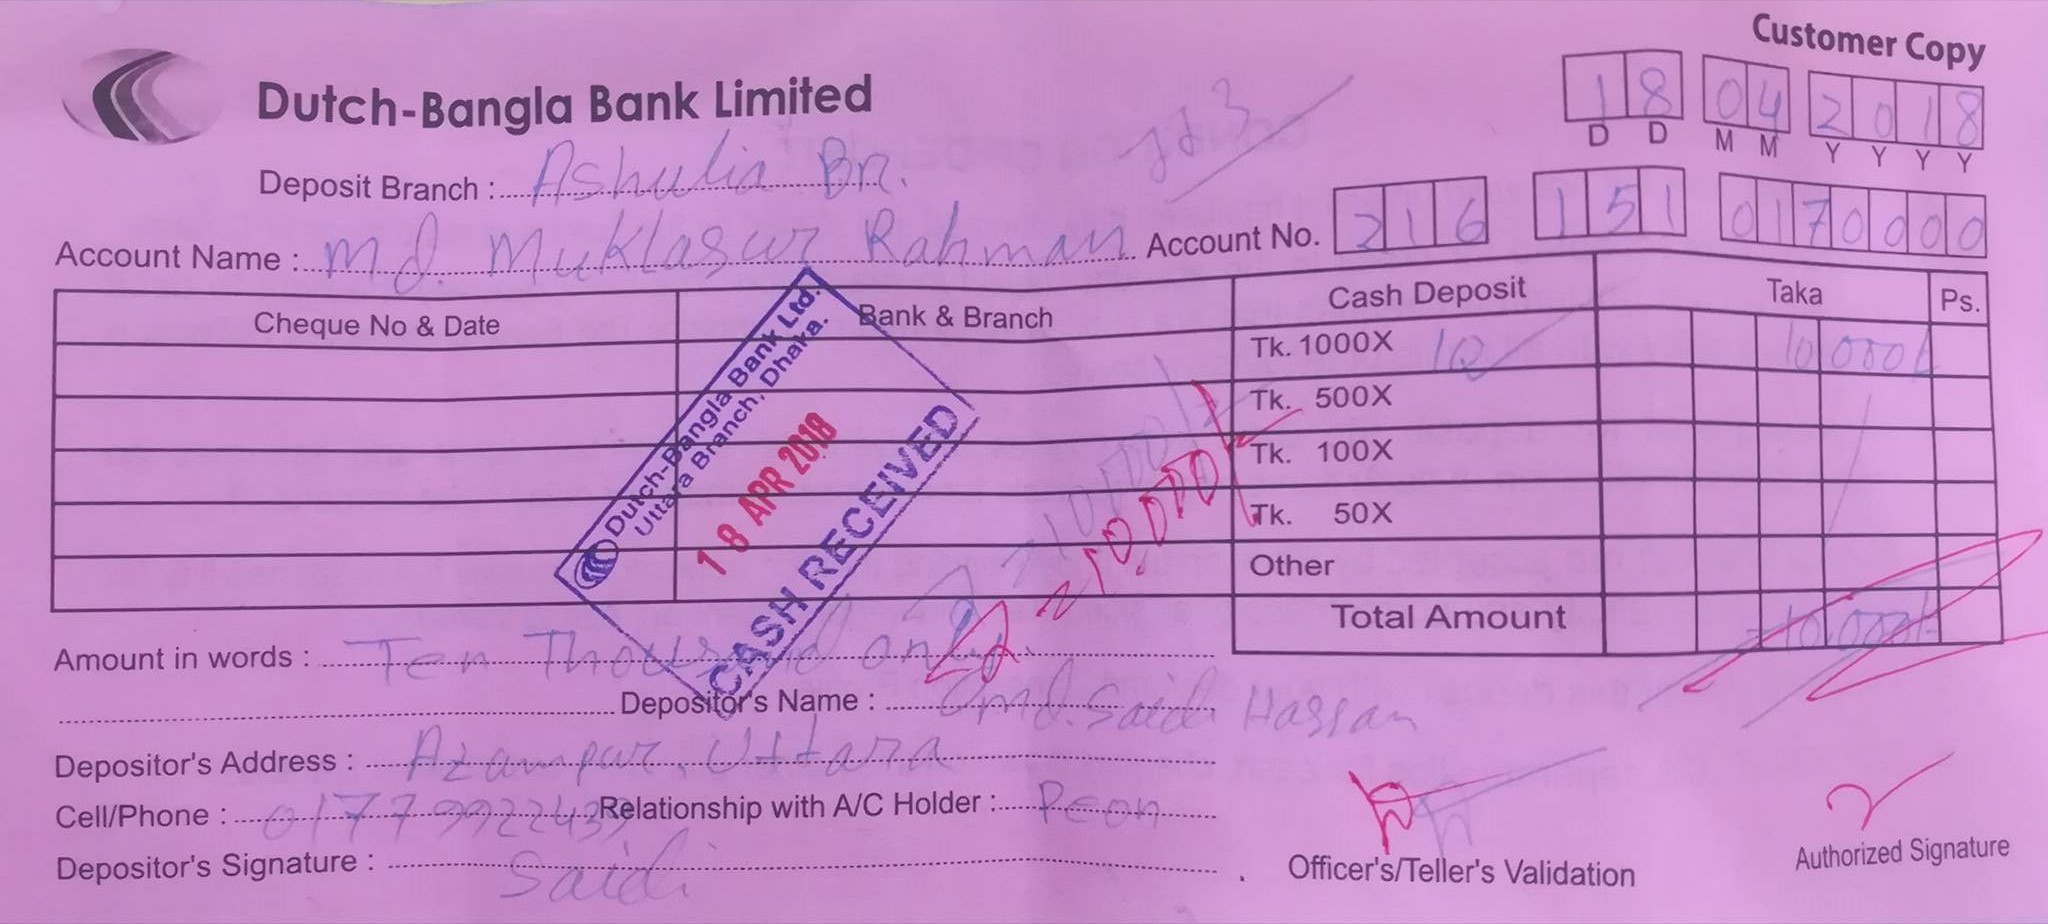 Customer Copy
Dutch-Bangla Bank Limited
18 04 2018
D D M M Y Y Y Y
Deposit Branch : Ashulia Br.
Account Name : Md. Muklasur Rahman Account No. 216 151 0170000
Cheque No & Date Bank & Branch Cash Deposit Taka Ps.
Tk. 1000X 10 10000/-
Tk. 500X
Tk. 100X
Tk. 50X
Other
Total Amount 10,000/-
Dutch-Bangla Bank Ltd.
Uttara Branch, Dhaka.
18 APR 2018
CASH RECEIVED
10000/-
10,000/-
Amount in words : Ten Thousand only
Depositor's Name : Md. Saidi Hassan
Depositor's Address : Azampur, Uttara
Cell/Phone : 01779922433 Relationship with A/C Holder : Peon
Depositor's Signature : Saidi
Officer's/Teller's Validation
Authorized Signature